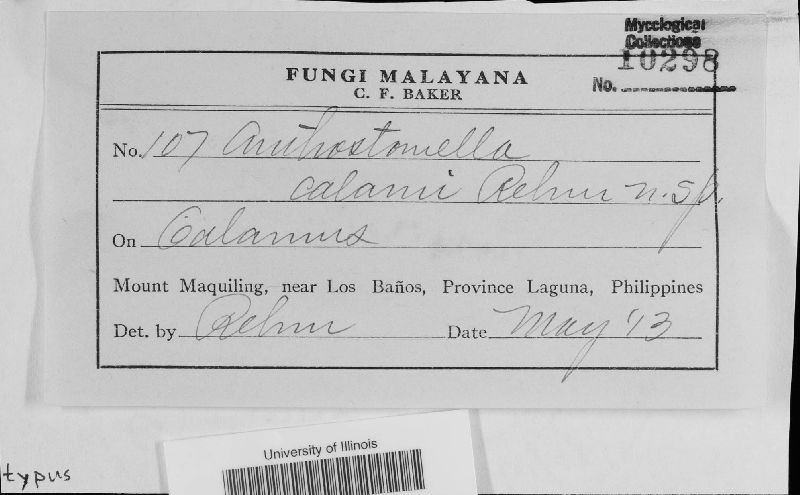 Mycological
Collections
10298
No.
FUNGI MALAYANA
C. F. BAKER
No. 107 Anthostomella
calami Rehm n. sp.
On Calamus
Mount Maquiling, near Los Baños, Province Laguna, Philippines
Det. by Rehm Date May '13
University of Illinois
typus